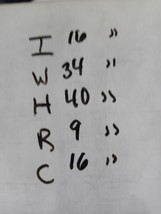 I 16 "
W 34 "
H 40 "
R 9 "
C 16 "